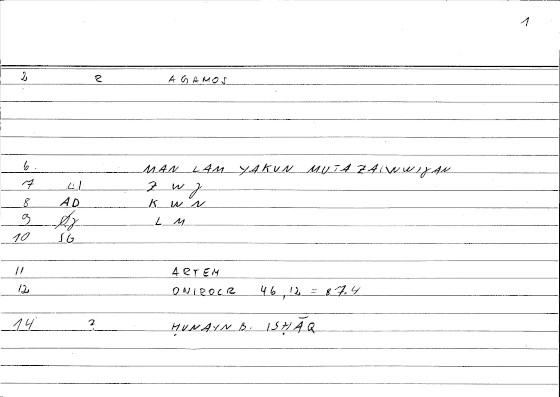 1
2 2 AGAMOS
6. MAN LAM YAKUN MUTAZAWWIǦAN
7 LI Z W J
8 AD K W N
9 L M
10 SG
11 ARTEM
12 ONIROCR 46,12 = 87.4
14 2 ḤUNAYN B. ISḤĀQ